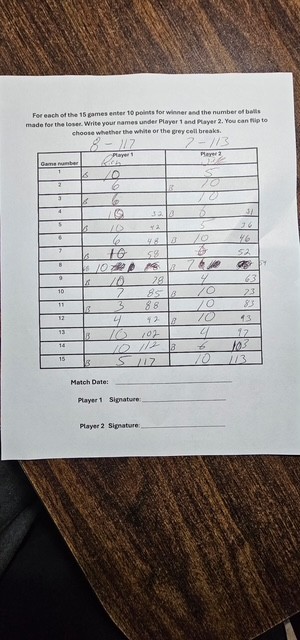 For each of the 15 games enter 10 points for winner and the number of balls
made for the loser. Write your names under Player 1 and Player 2. You can flip to
choose whether the white or the grey cell breaks.
8 - 117 7 - 113
Player 1 Player 2
Game number
1 B 10 5
2 6 B 10
3 B 6 10
4 10 32 B 6 31
5 B 10 42 5 36
6 6 48 B 10 46
7 B 10 58 6 52
8 10 B 7
9 B 10 78 4 63
10 7 85 B 10 73
11 B 3 88 10 83
12 4 92 B 10 93
13 B 10 102 4 97
14 10 112 B 6 103
15 B 5 117 10 113
Match Date:
Player 1 Signature:
Player 2 Signature: